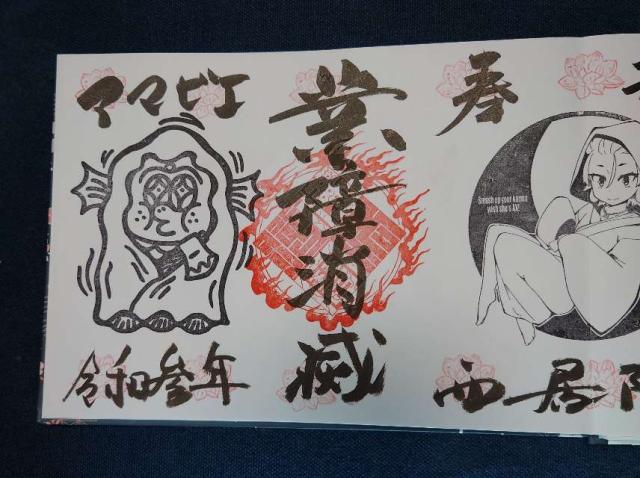 アマビエ
令和参年
業障消滅
奉
Smash up your karma
wish she's AX!
西居